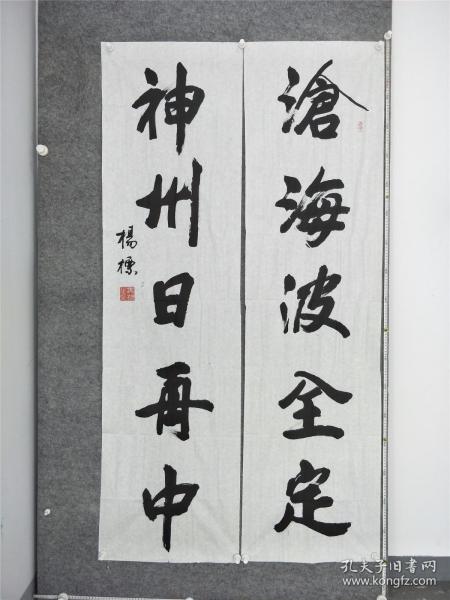 滄海波全定
神州日再中
楊標
孔夫子旧书网
www.kongfz.com